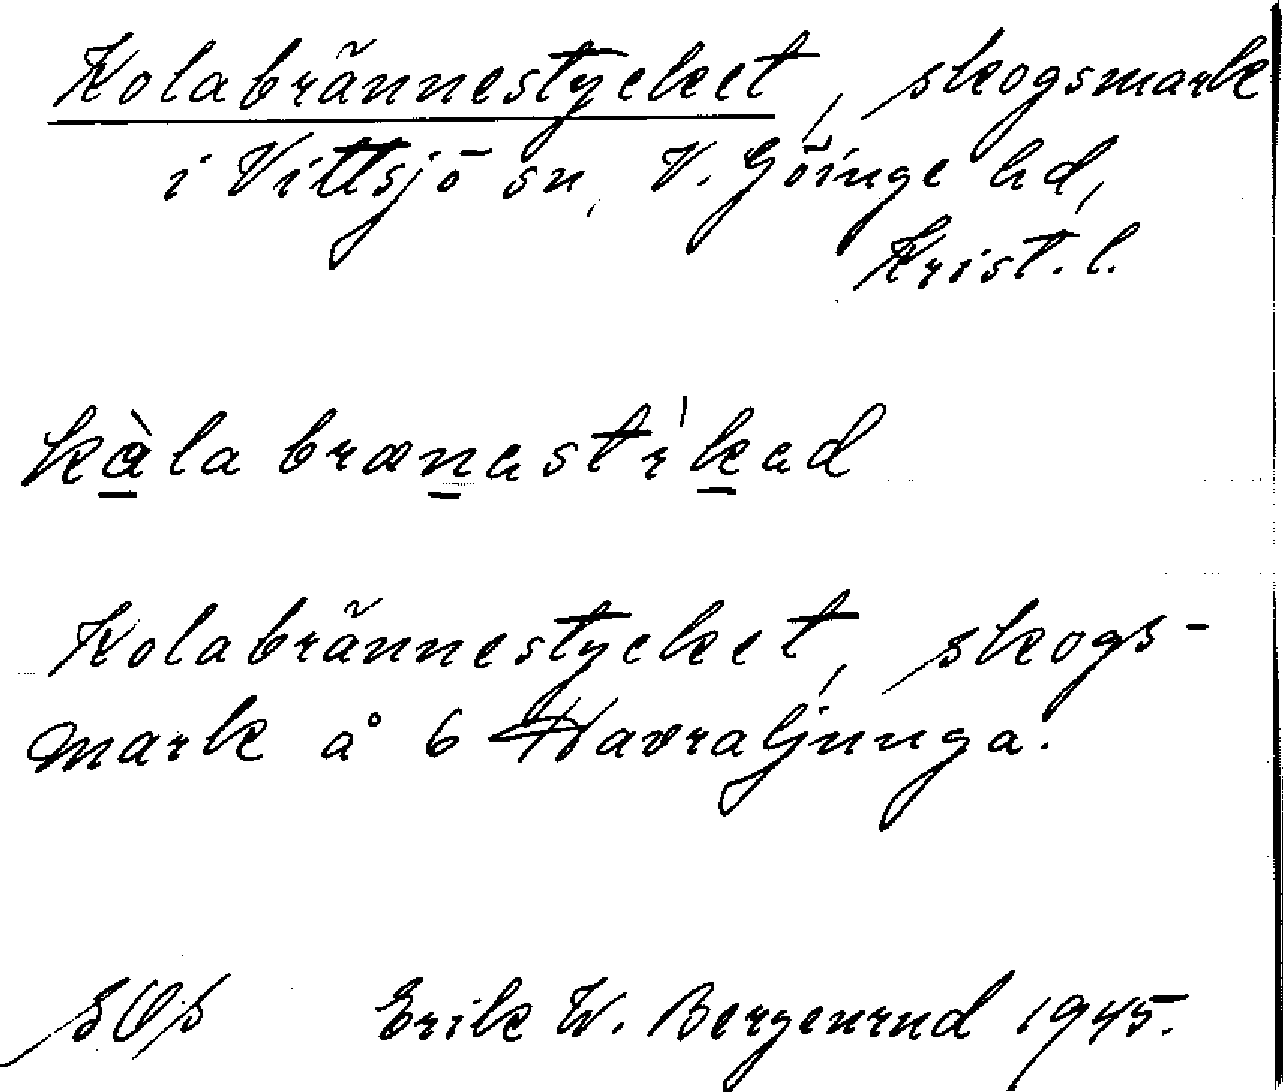 Kolabrännestycket, skogsmark
i Vittsjö sn, V. Göinge hd,
Krist. l.
kàla brænast'ıkad
Kolabrännestycket, skogs-
mark å 6 Havraljunga.
SOS Erik W. Bergenrud 1945.